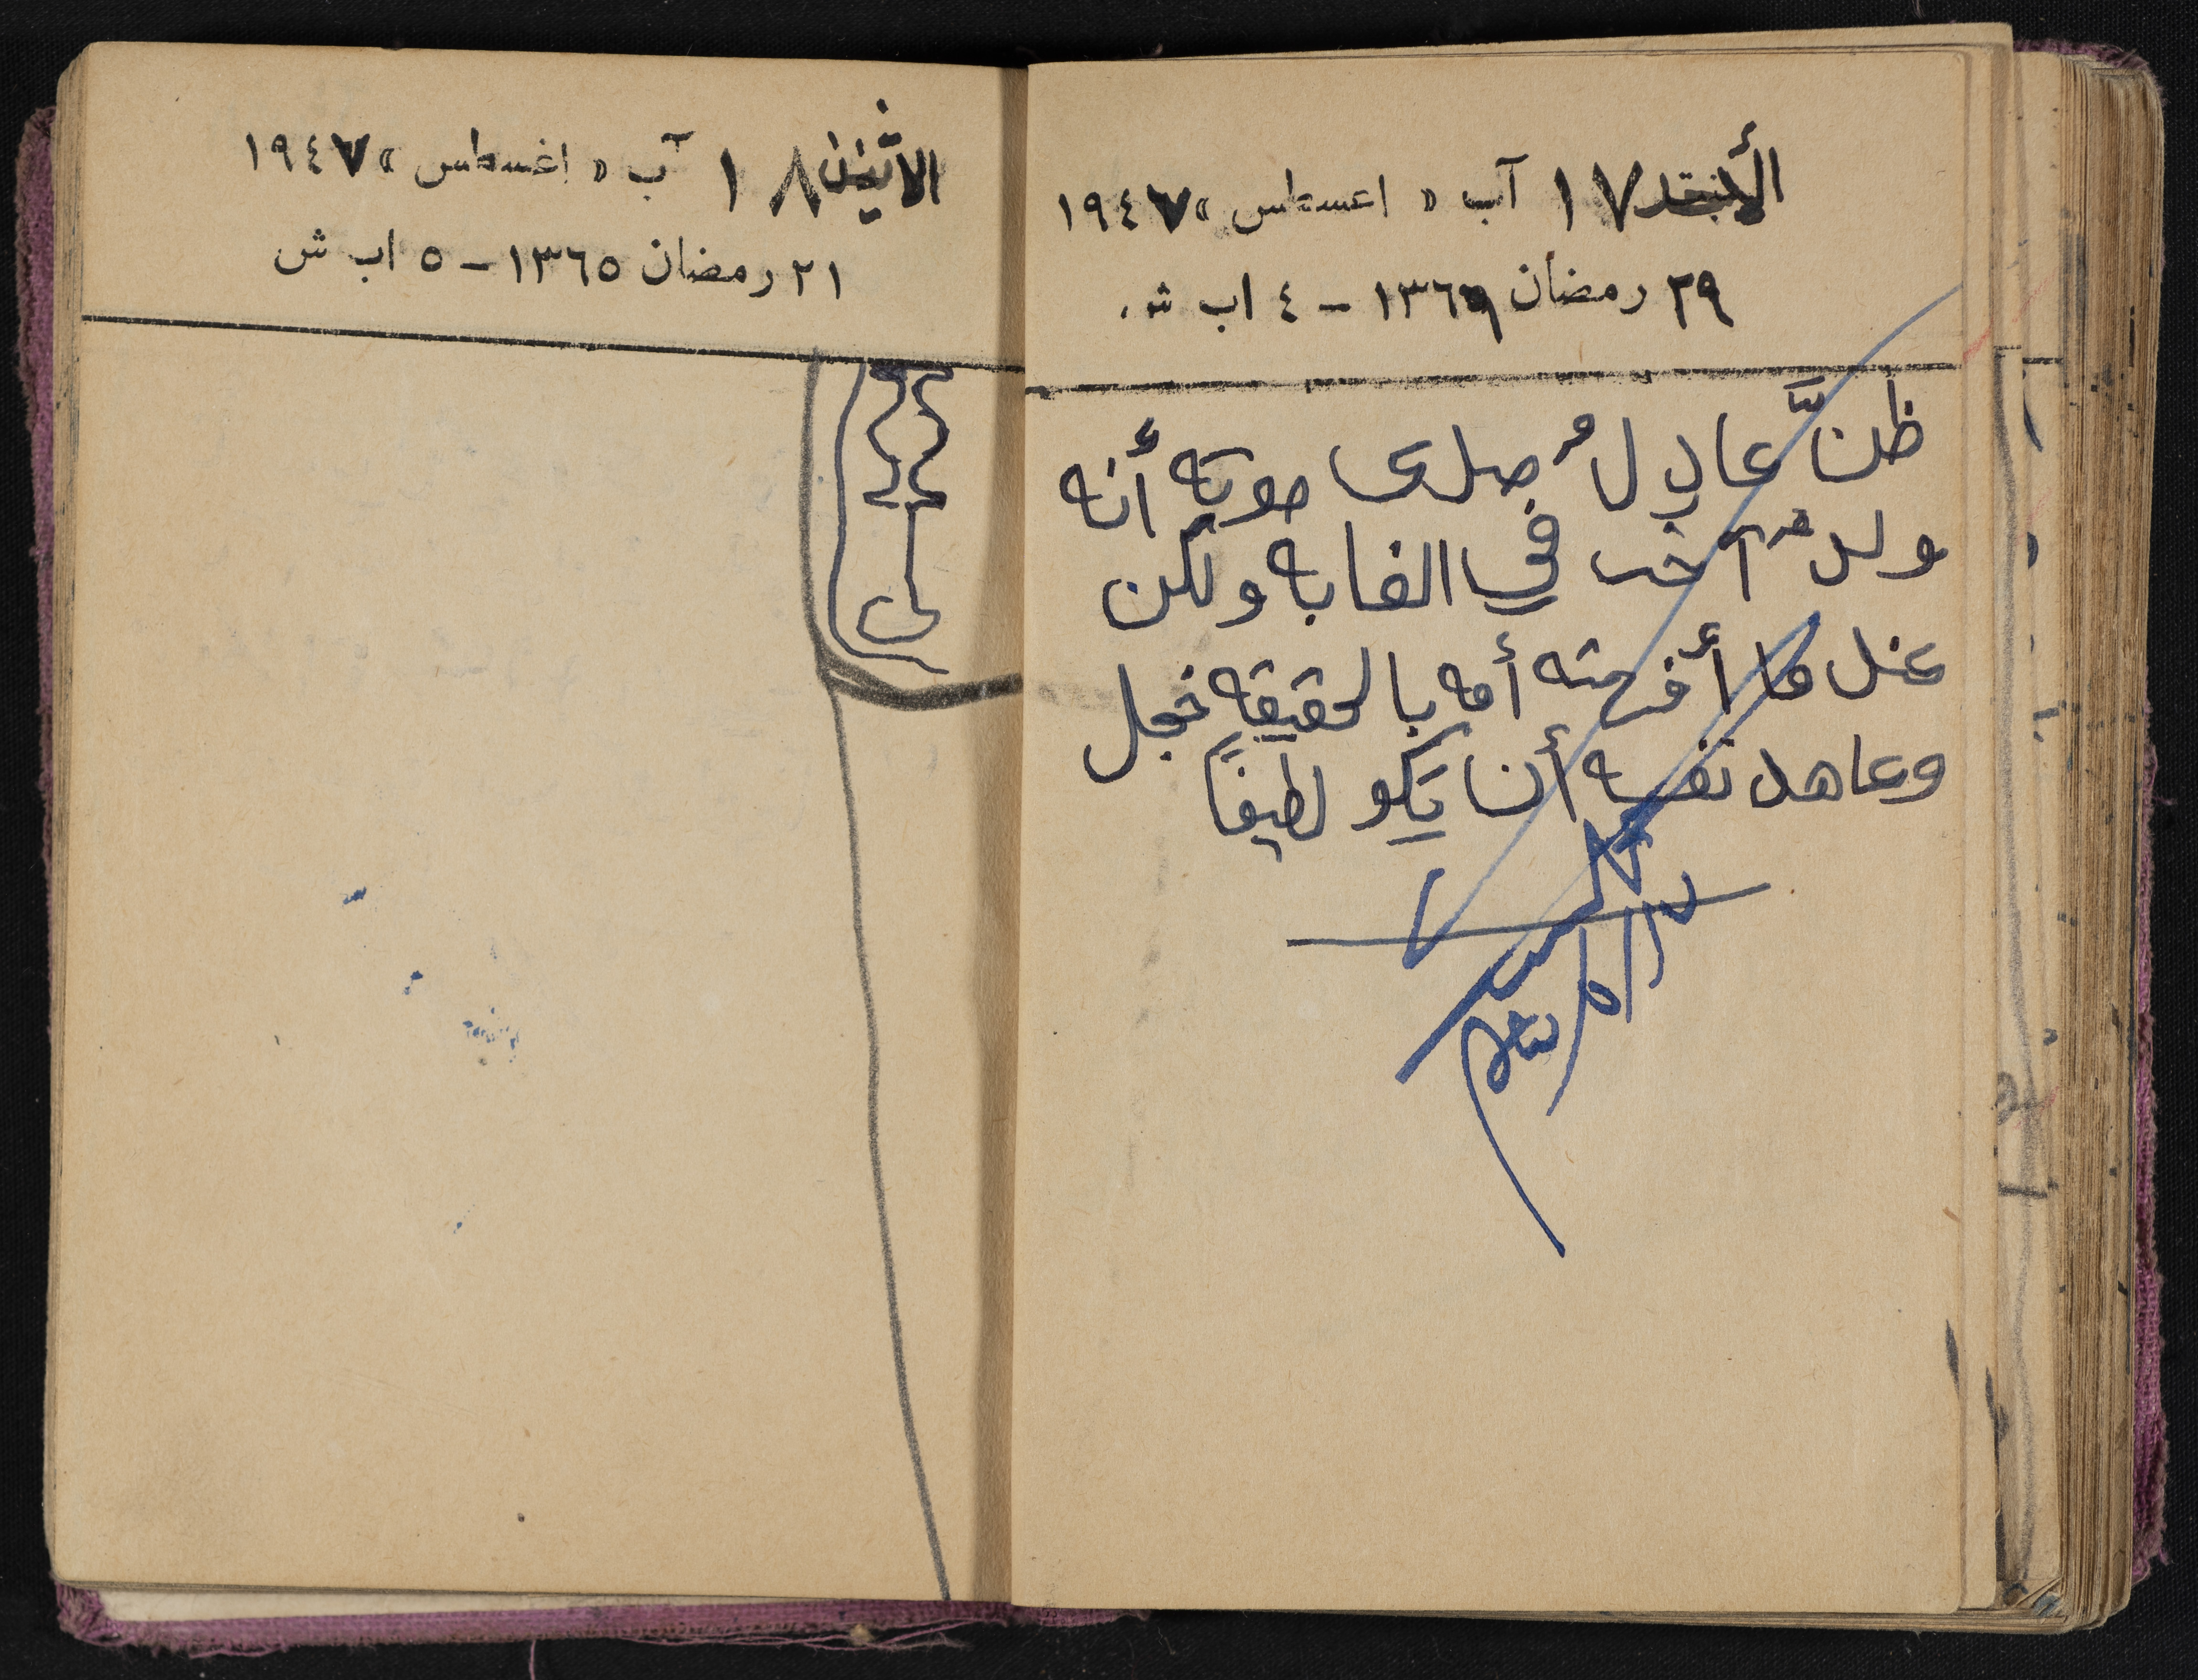 الأحد ١٧ آب « اغسطس » ١٩٤٧
٢٩ رمضان ١٣٦٦ - ٤ اب ش.
ظنَّ عادلُ صدى صوته أنه
ولدُ آخر في الغابه ولكن
عندما أفهمته أمه بالحقيقه خجل
وعاهد نفسه أن يكو لطيفاً
الاثنين ١٨ آب « اغسطس » ١٩٤٧
٢١ رمضان ١٣٦٥ - ٥ اب ش